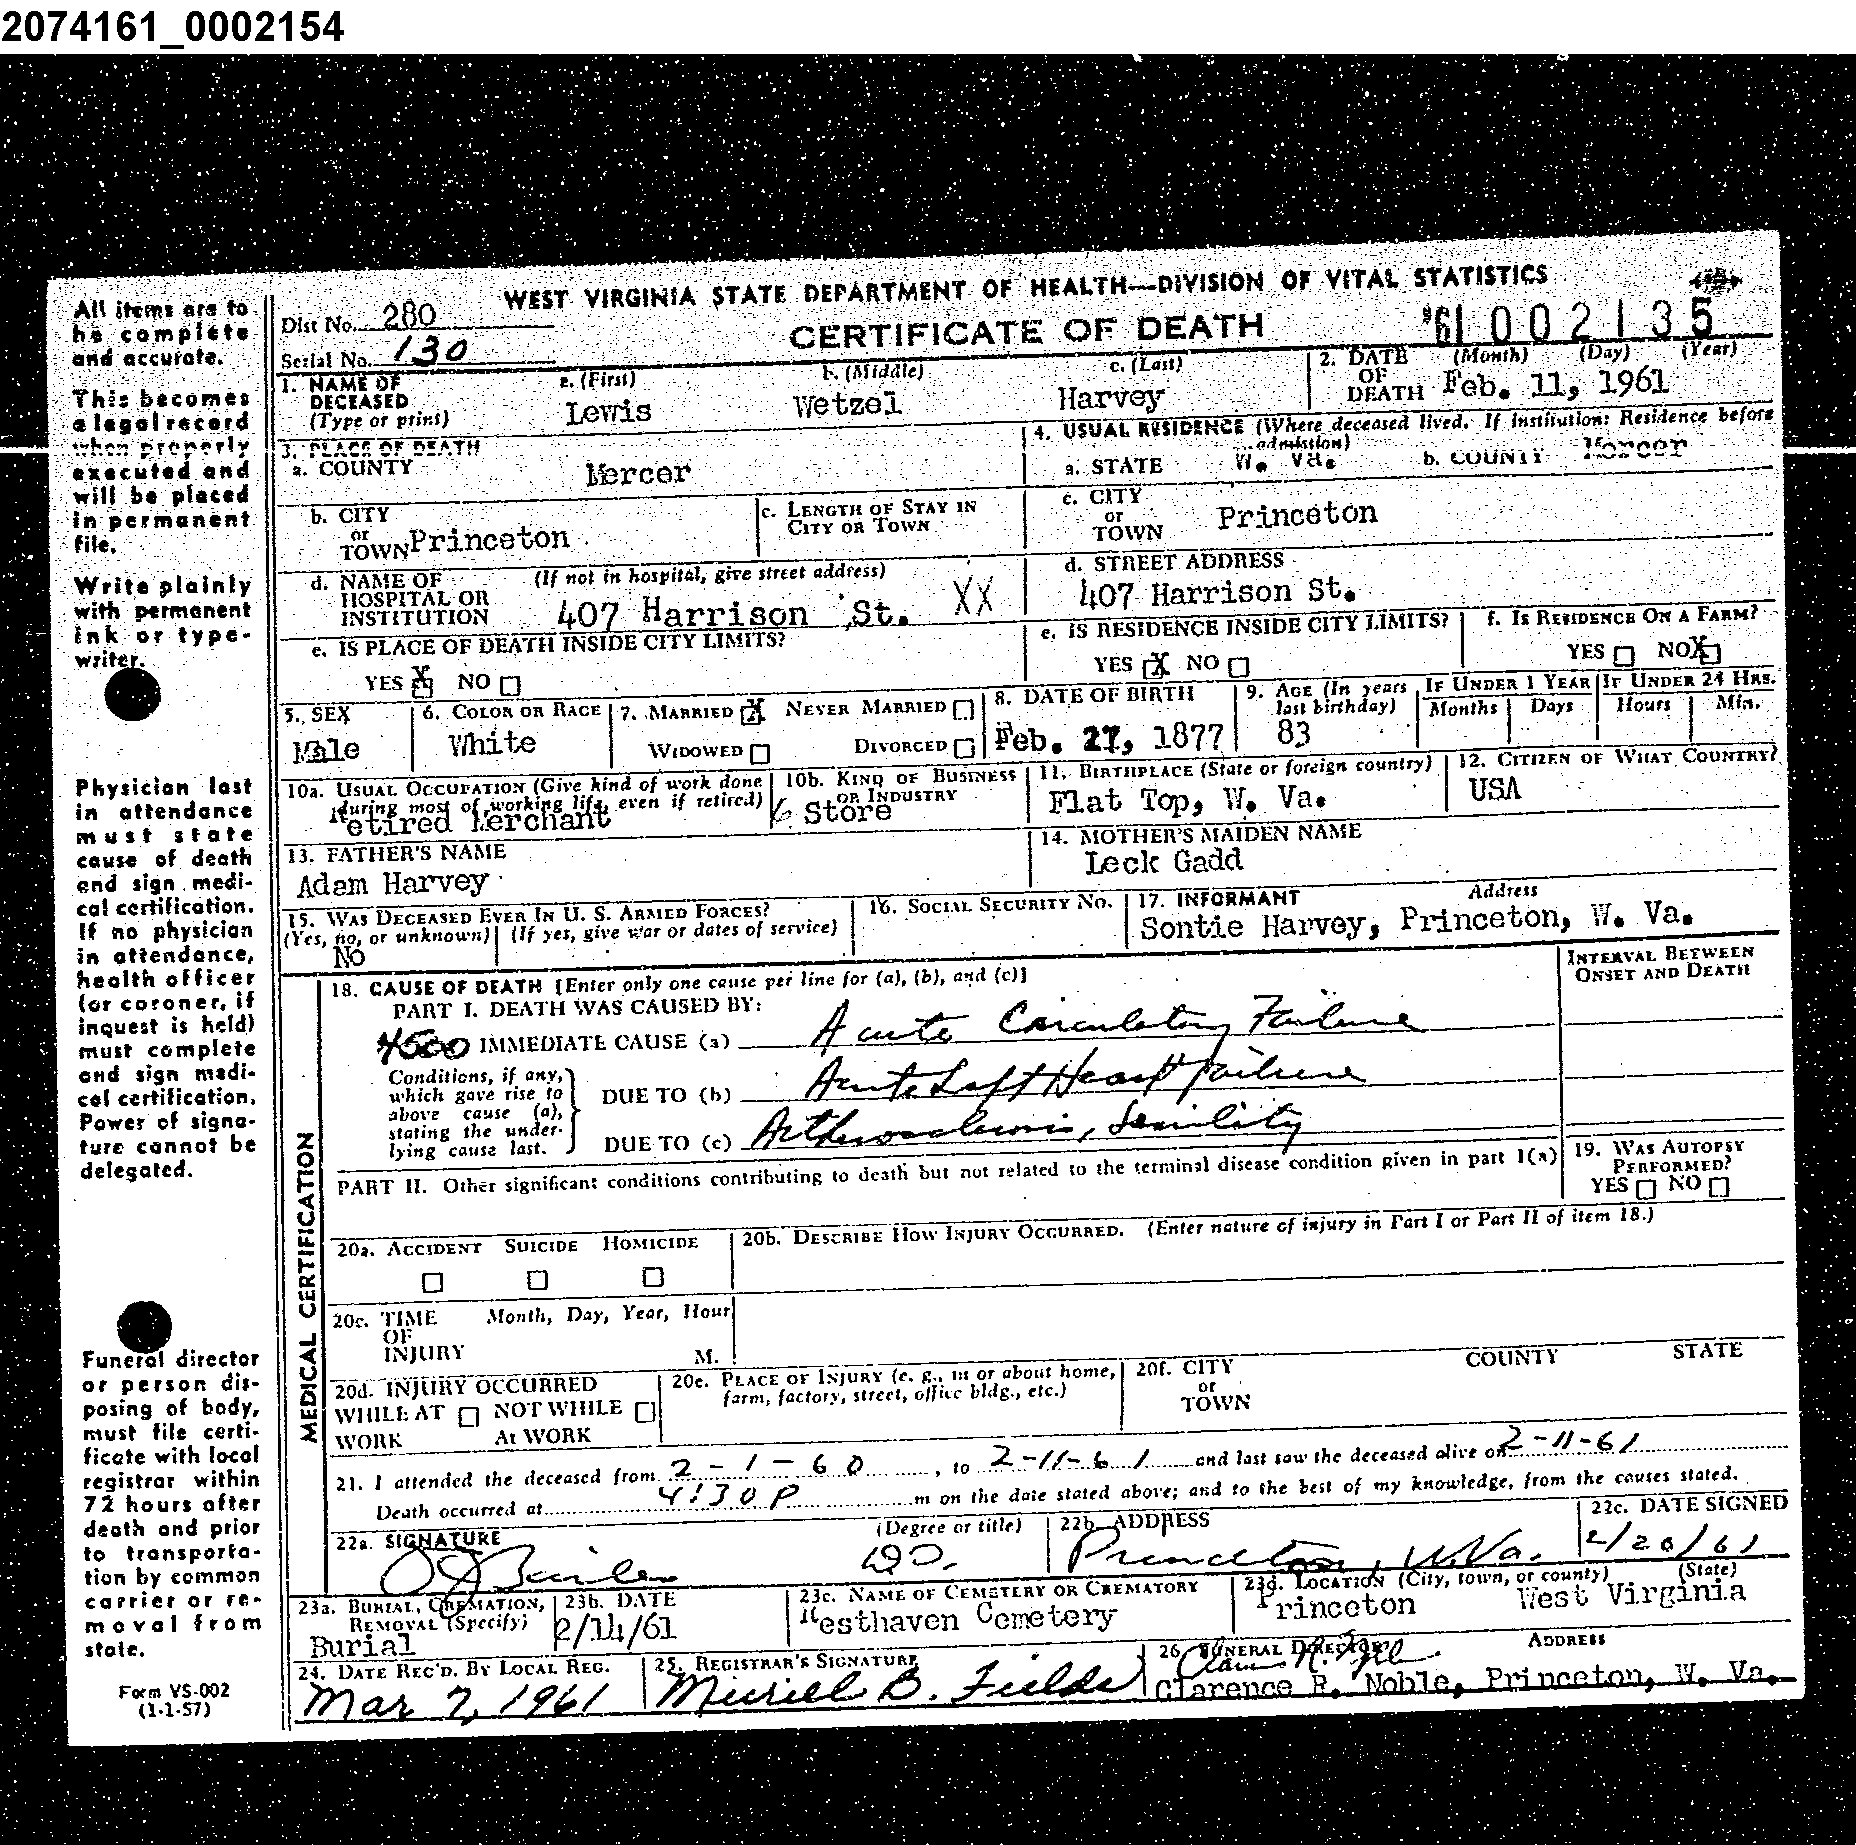 2074161_0002154
WEST VIRGINIA STATE DEPARTMENT OF HEALTH—DIVISION OF VITAL STATISTICS
CERTIFICATE OF DEATH
Dist No. 280
Serial No. 130
'61 002135
All items are to
be complete
and accurate.
This becomes
a legal record
when properly
executed and
will be placed
in permanent
file.
Write plainly
with permanent
ink or type-
writer.
Physician last
in attendance
must state
cause of death
and sign medi-
cal certification.
If no physician
in attendance,
health officer
(or coroner, if
inquest is held)
must complete
and sign medi-
cal certification.
Power of signa-
ture cannot be
delegated.
Funeral director
or person dis-
posing of body,
must file certi-
ficate with local
registrar within
72 hours after
death and prior
to transporta-
tion by common
carrier or re-
moval from
state.
Form VS-002
(1-1-57)
1. NAME OF DECEASED (Type or print) a. (First) Lewis b. (Middle) Wetzel c. (Last) Harvey
2. DATE OF DEATH (Month) (Day) (Year) Feb. 11, 1961
3. PLACE OF DEATH
a. COUNTY Mercer
b. CITY or TOWN Princeton
c. LENGTH OF STAY IN CITY OR TOWN
d. NAME OF HOSPITAL OR INSTITUTION (If not in hospital, give street address) 407 Harrison St. XX
e. IS PLACE OF DEATH INSIDE CITY LIMITS?
YES X NO
4. USUAL RESIDENCE (Where deceased lived. If institution: Residence before admission)
a. STATE W. Va. b. COUNTY Mercer
c. CITY or TOWN Princeton
d. STREET ADDRESS
407 Harrison St.
e. IS RESIDENCE INSIDE CITY LIMITS?
YES X NO
f. IS RESIDENCE ON A FARM?
YES NO X
5. SEX
Male
6. COLOR OR RACE
White
7. MARRIED X NEVER MARRIED
WIDOWED DIVORCED
8. DATE OF BIRTH
Feb. 27, 1877
9. AGE (In years last birthday)
83
IF UNDER 1 YEAR
Months Days
IF UNDER 24 HRS.
Hours Min.
10a. USUAL OCCUPATION (Give kind of work done during most of working life, even if retired)
Retired Merchant
10b. KIND OF BUSINESS OR INDUSTRY
Store
11. BIRTHPLACE (State or foreign country)
Flat Top, W. Va.
12. CITIZEN OF WHAT COUNTRY?
USA
13. FATHER'S NAME
Adam Harvey
14. MOTHER'S MAIDEN NAME
Leck Gadd
15. WAS DECEASED EVER IN U. S. ARMED FORCES?
(Yes, no, or unknown) (If yes, give war or dates of service)
No
16. SOCIAL SECURITY NO.
17. INFORMANT Address
Sontie Harvey, Princeton, W. Va.
MEDICAL CERTIFICATION
18. CAUSE OF DEATH [Enter only one cause per line for (a), (b), and (c)]
INTERVAL BETWEEN ONSET AND DEATH
PART I. DEATH WAS CAUSED BY:
4500 IMMEDIATE CAUSE (a) Acute Circulatory Failure
Conditions, if any, which gave rise to above cause (a), stating the under-lying cause last.
DUE TO (b) Acute Left Heart Failure
DUE TO (c) Artherosclerosis, Senility
PART II. Other significant conditions contributing to death but not related to the terminal disease condition given in part I(a)
19. WAS AUTOPSY PERFORMED?
YES NO
20a. ACCIDENT SUICIDE HOMICIDE
20b. DESCRIBE HOW INJURY OCCURRED. (Enter nature of injury in Part I or Part II of item 18.)
20c. TIME OF INJURY Month, Day, Year, Hour
M.
20d. INJURY OCCURRED
WHILE AT WORK NOT WHILE At WORK
20e. PLACE OF INJURY (e. g., in or about home, farm, factory, street, office bldg., etc.)
20f. CITY or TOWN COUNTY STATE
21. I attended the deceased from 2-1-60, to 2-11-61 and last saw the deceased alive on 2-11-61
Death occurred at 4:30 P m on the date stated above; and to the best of my knowledge, from the causes stated.
22a. SIGNATURE (Degree or title)
D.O.
22b. ADDRESS
Princeton, W.Va.
22c. DATE SIGNED
2/20/61
23a. BURIAL, CREMATION, REMOVAL (Specify)
Burial
23b. DATE
2/14/61
23c. NAME OF CEMETERY OR CREMATORY
Resthaven Cemetery
23d. LOCATION (City, town, or county) (State)
Princeton West Virginia
24. DATE REC'D. BY LOCAL REG.
Mar 7, 1961
25. REGISTRAR'S SIGNATURE
Muriell B. Fields
26. FUNERAL DIRECTOR ADDRESS
Clarence R. Noble, Princeton, W. Va.